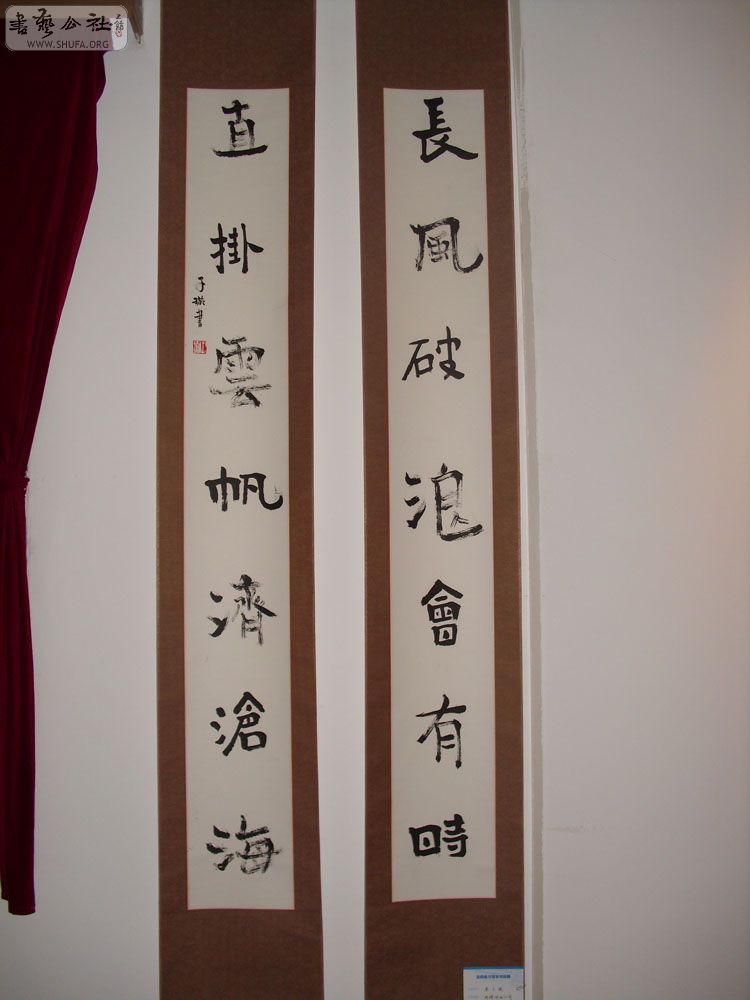 長風破浪會有時
直掛雲帆濟滄海
書藝公社
WWW.SHUFA.ORG